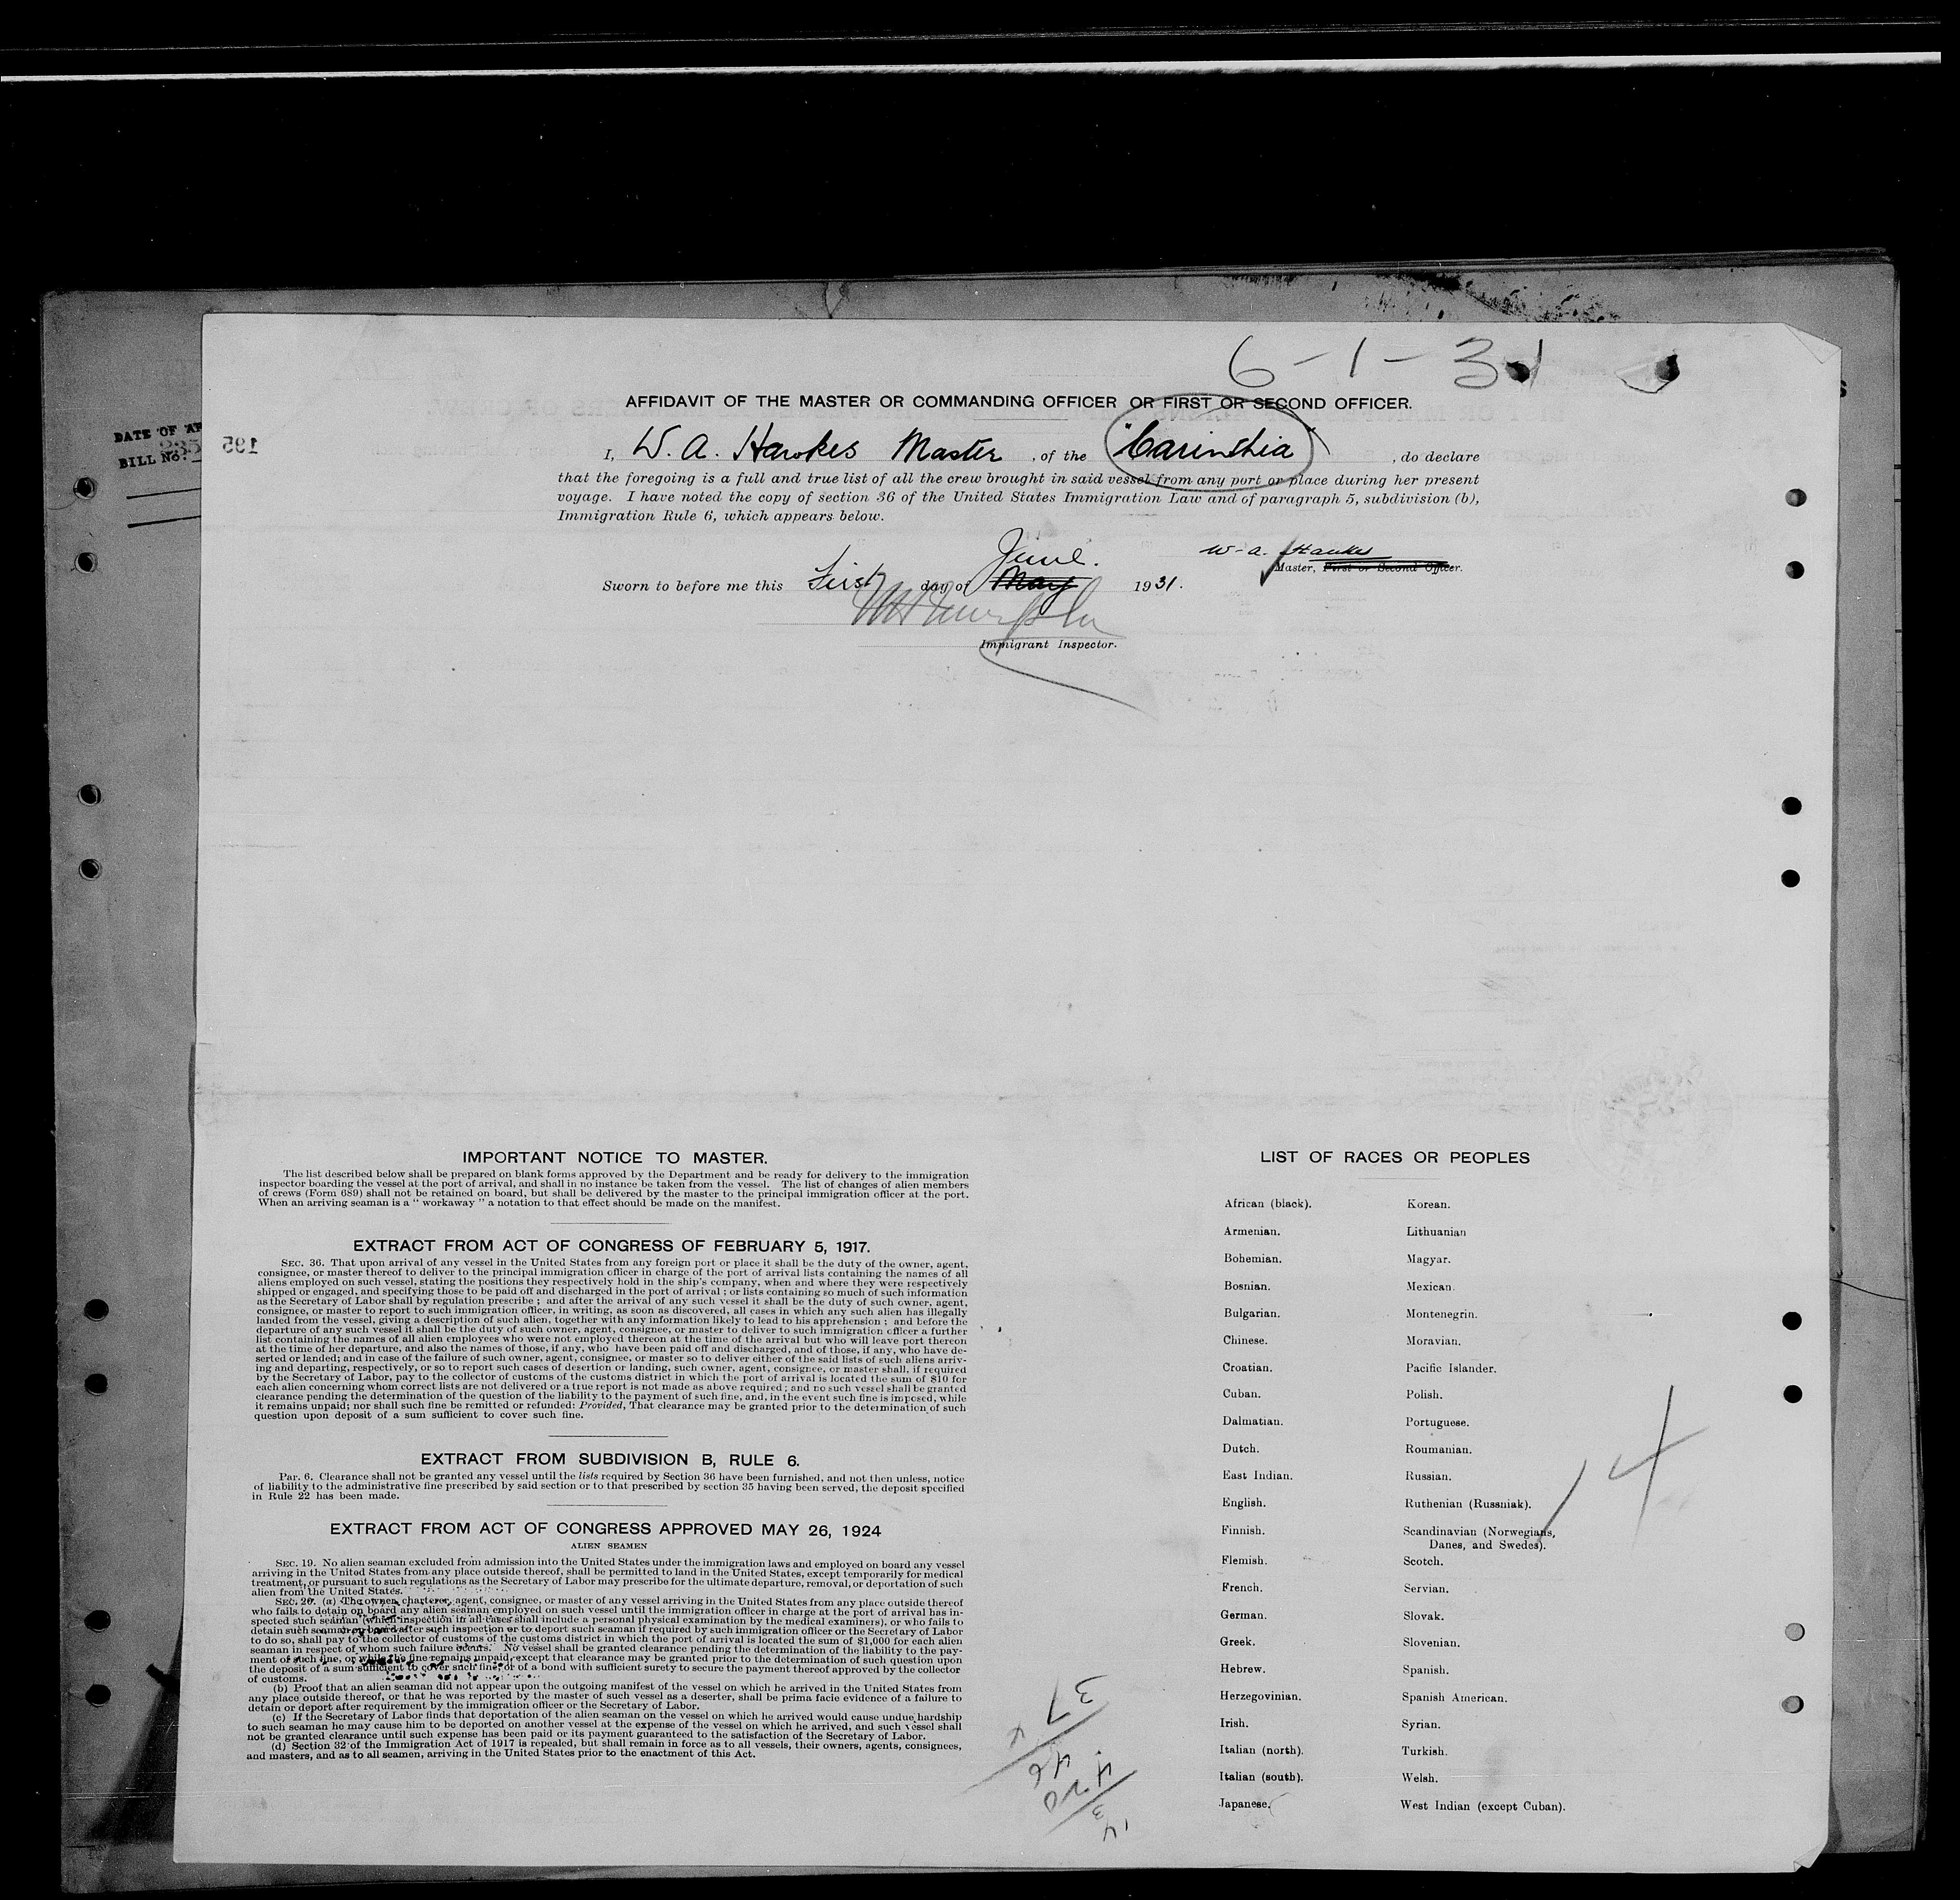 6-1-31
AFFIDAVIT OF THE MASTER OR COMMANDING OFFICER OR FIRST OR SECOND OFFICER.
DATE OF AR
BILL No.
195
I, W. A. Hawkes Master, of the "Carinthia", do declare
that the foregoing is a full and true list of all the crew brought in said vessel from any port or place during her present
voyage. I have noted the copy of section 36 of the United States Immigration Law and of paragraph 5, subdivision (b),
Immigration Rule 6, which appears below.
W. A. Hawkes
Master, First or Second Officer.
June.
Sworn to before me this First day of May 1931.
Immigrant Inspector.
IMPORTANT NOTICE TO MASTER.
The list described below shall be prepared on blank forms approved by the Department and be ready for delivery to the immigration
inspector boarding the vessel at the port of arrival, and shall in no instance be taken from the vessel. The list of changes of alien members
of crews (Form 689) shall not be retained on board, but shall be delivered by the master to the principal immigration officer at the port.
When an arriving seaman is a " workaway " a notation to that effect should be made on the manifest.
EXTRACT FROM ACT OF CONGRESS OF FEBRUARY 5, 1917.
SEC. 36. That upon arrival of any vessel in the United States from any foreign port or place it shall be the duty of the owner, agent,
consignee, or master thereof to deliver to the principal immigration officer in charge of the port of arrival lists containing the names of all
aliens employed on such vessel, stating the positions they respectively hold in the ship's company, when and where they were respectively
shipped or engaged, and specifying those to be paid off and discharged in the port of arrival ; or lists containing so much of such information
as the Secretary of Labor shall by regulation prescribe ; and after the arrival of any such vessel it shall be the duty of such owner, agent,
consignee, or master to report to such immigration officer, in writing, as soon as discovered, all cases in which any such alien has illegally
landed from the vessel, giving a description of such alien, together with any information likely to lead to his apprehension ; and before the
departure of any such vessel it shall be the duty of such owner, agent, consignee, or master to deliver to such immigration officer a further
list containing the names of all alien employees who were not employed thereon at the time of the arrival but who will leave port thereon
at the time of her departure, and also the names of those, if any, who have been paid off and discharged, and of those, if any, who have de-
serted or landed; and in case of the failure of such owner, agent, consignee, or master so to deliver either of the said lists of such aliens arriv-
ing and departing, respectively, or so to report such cases of desertion or landing, such owner, agent, consignee, or master shall, if required
by the Secretary of Labor, pay to the collector of customs of the customs district in which the port of arrival is located the sum of $10 for
each alien concerning whom correct lists are not delivered or a true report is not made as above required ; and no such vessel shall be granted
clearance pending the determination of the question of the liability to the payment of such fine, and, in the event such fine is imposed, while
it remains unpaid; nor shall such fine be remitted or refunded: Provided, That clearance may be granted prior to the determination of such
question upon deposit of a sum sufficient to cover such fine.
EXTRACT FROM SUBDIVISION B, RULE 6.
Par. 6. Clearance shall not be granted any vessel until the lists required by Section 36 have been furnished, and not then unless, notice
of liability to the administrative fine prescribed by said section or to that prescribed by section 35 having been served, the deposit specified
in Rule 22 has been made.
EXTRACT FROM ACT OF CONGRESS APPROVED MAY 26, 1924
ALIEN SEAMEN
SEC. 19. No alien seaman excluded from admission into the United States under the immigration laws and employed on board any vessel
arriving in the United States from any place outside thereof, shall be permitted to land in the United States, except temporarily for medical
treatment, or pursuant to such regulations as the Secretary of Labor may prescribe for the ultimate departure, removal, or deportation of such
alien from the United States.
SEC. 20. (a) The owner, charterer, agent, consignee, or master of any vessel arriving in the United States from any place outside thereof
who fails to detain on board any alien seaman employed on such vessel until the immigration officer in charge at the port of arrival has in-
spected such seaman (which inspection in all cases shall include a personal physical examination by the medical examiners), or who fails to
detain such seaman on board after such inspection or to deport such seaman if required by such immigration officer or the Secretary of Labor
to do so, shall pay to the collector of customs of the customs district in which the port of arrival is located the sum of $1,000 for each alien
seaman in respect of whom such failure occurs. No vessel shall be granted clearance pending the determination of the liability to the pay-
ment of such fine, or while the fine remains unpaid, except that clearance may be granted prior to the determination of such question upon
the deposit of a sum sufficient to cover such fine, or of a bond with sufficient surety to secure the payment thereof approved by the collector
of customs.
(b) Proof that an alien seaman did not appear upon the outgoing manifest of the vessel on which he arrived in the United States from
any place outside thereof, or that he was reported by the master of such vessel as a deserter, shall be prima facie evidence of a failure to
detain or deport after requirement by the immigration officer or the Secretary of Labor.
(c) If the Secretary of Labor finds that deportation of the alien seaman on the vessel on which he arrived would cause undue hardship
to such seaman he may cause him to be deported on another vessel at the expense of the vessel on which he arrived, and such vessel shall
not be granted clearance until such expense has been paid or its payment guaranteed to the satisfaction of the Secretary of Labor.
(d) Section 32 of the Immigration Act of 1917 is repealed, but shall remain in force as to all vessels, their owners, agents, consignees,
and masters, and as to all seamen, arriving in the United States prior to the enactment of this Act.
LIST OF RACES OR PEOPLES
African (black).
Armenian.
Bohemian.
Bosnian.
Bulgarian.
Chinese.
Croatian.
Cuban.
Dalmatian.
Dutch.
East Indian.
English.
Finnish.
Flemish.
French.
German.
Greek.
Hebrew.
Herzegovinian.
Irish.
Italian (north).
Italian (south).
Japanese.
Korean.
Lithuanian
Magyar.
Mexican.
Montenegrin.
Moravian.
Pacific Islander.
Polish.
Portuguese.
Roumanian.
Russian.
Ruthenian (Russniak).
Scandinavian (Norwegians,
Danes, and Swedes).
Scotch.
Servian.
Slovak.
Slovenian.
Spanish.
Spanish American.
Syrian.
Turkish.
Welsh.
West Indian (except Cuban).
14